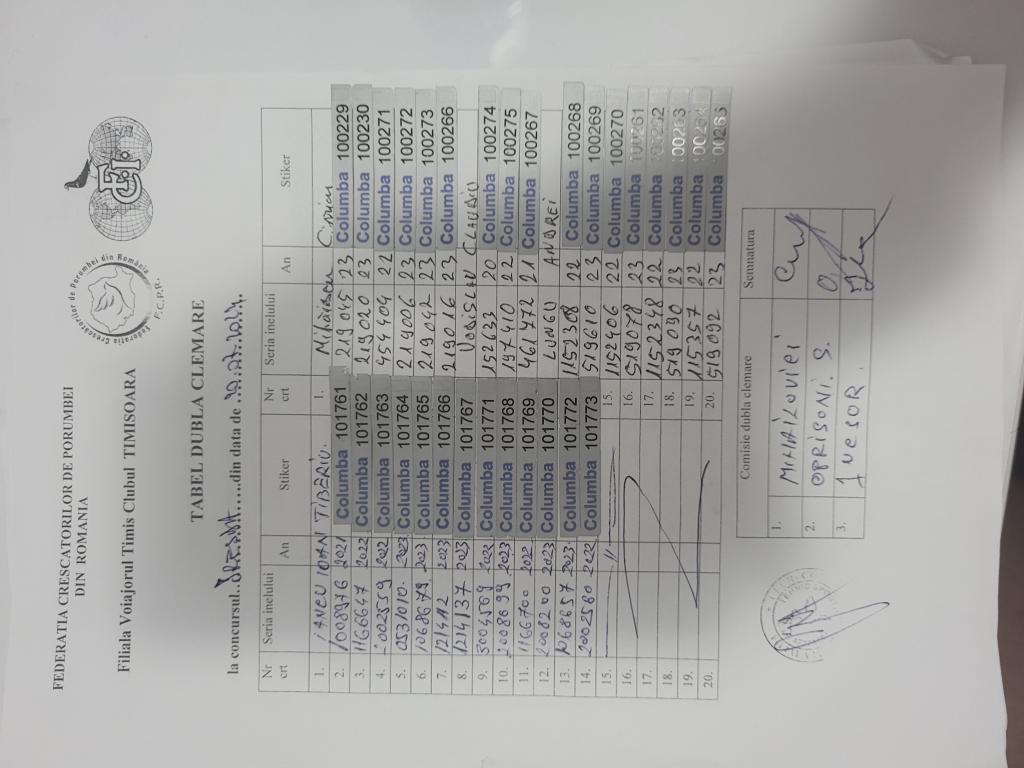 FEDERATIA CRESCATORILOR DE PORUMBEI
DIN ROMANIA
Filiala Voiajorul Timis Clubul TIMISOARA
Federatia Crescatorilor de Porumbei din România
F.C.P.R.
TABEL DUBLA CLEMARE
la concursul din data de
Nr crt Seria inelului An Stiker Nr crt Seria inelului An Stiker
1. IANCU IOAN TIBERIU. 1. Mihaiescu Ciprian
2. 1008976 2021 Columba 101761 219045 23 Columba 100229
3. 1166647 2022 Columba 101762 219020 23 Columba 100230
4. 2002559 2022 Columba 101763 454404 22 Columba 100271
5. 0531010. 2023 Columba 101764 219006 23 Columba 100272
6. 1068679 2023 Columba 101765 219042 23 Columba 100273
7. 121412 2023 Columba 101766 219016 23 Columba 100266
8. 1214137 2023 Columba 101767 VODISLAV CLAUDIU
9. 5004569 2022 Columba 101771 152633 20 Columba 100274
10. 2008699 2023 Columba 101768 197410 22 Columba 100275
11. 1166700 2022 Columba 101769 461472 21 Columba 100267
12. 2008200 2023 Columba 101770 LUNGU ANDREI
13. 1068657 2023 Columba 101772 1152308 22 Columba 100268
14. 2002580 2022 Columba 101773 519610 23 Columba 100269
15. 15. 1152406 22 Columba 100270
16. 16. 519078 23 Columba 100261
17. 17. 1152348 22 Columba 100262
18. 18. 519090 23 Columba 100263
19. 19. 115357 22 Columba 100264
20. 20. 519092 23 Columba 100265
Comisie dubla clemare Semnatura
1. MIHAILOVICI
2. OPRISONI. S.
3.